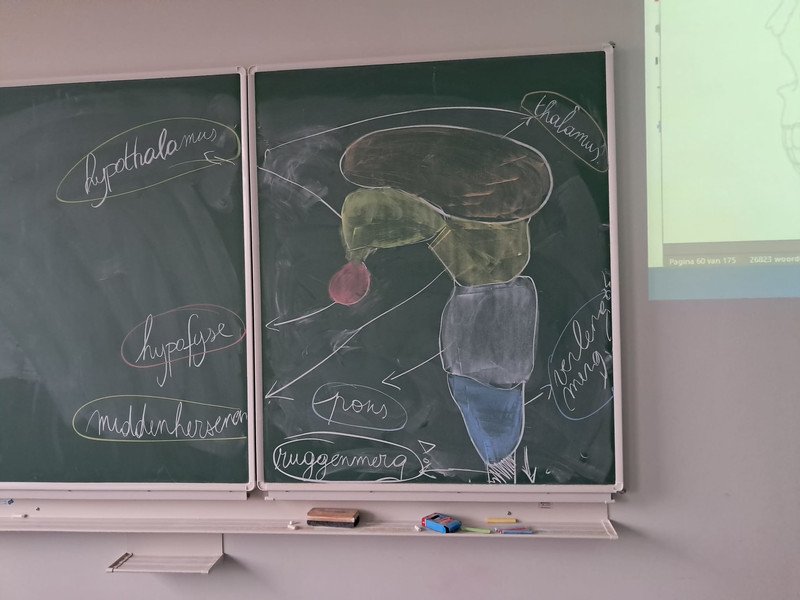 hypothalamus
thalamus
hypofyse
middenhersenen
pons
verlengd
merg
ruggenmerg
Pagina 60 van 175 26823 woord